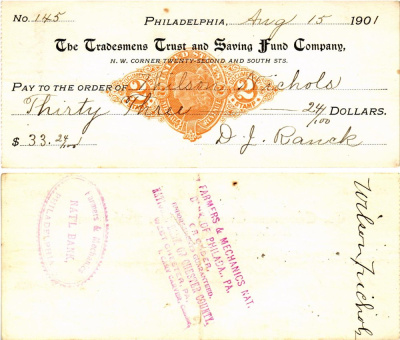 No. 145 Philadelphia, Aug 15 1901
The Tradesmens Trust and Saving Fund Company,
N. W. CORNER TWENTY-SECOND AND SOUTH STS.
PAY TO THE ORDER OF Wilson Nichols
Thirty Three 24/100 DOLLARS.
$ 33.24/100 D. J. Ranck
2 2
Farmers & Mechanics
NAT'L BANK
PHILADELPHIA
FARMERS & MECHANICS NAT.
BANK OF PHILADA., PA.
CHESTER COUNTY,
Wilson Nichols